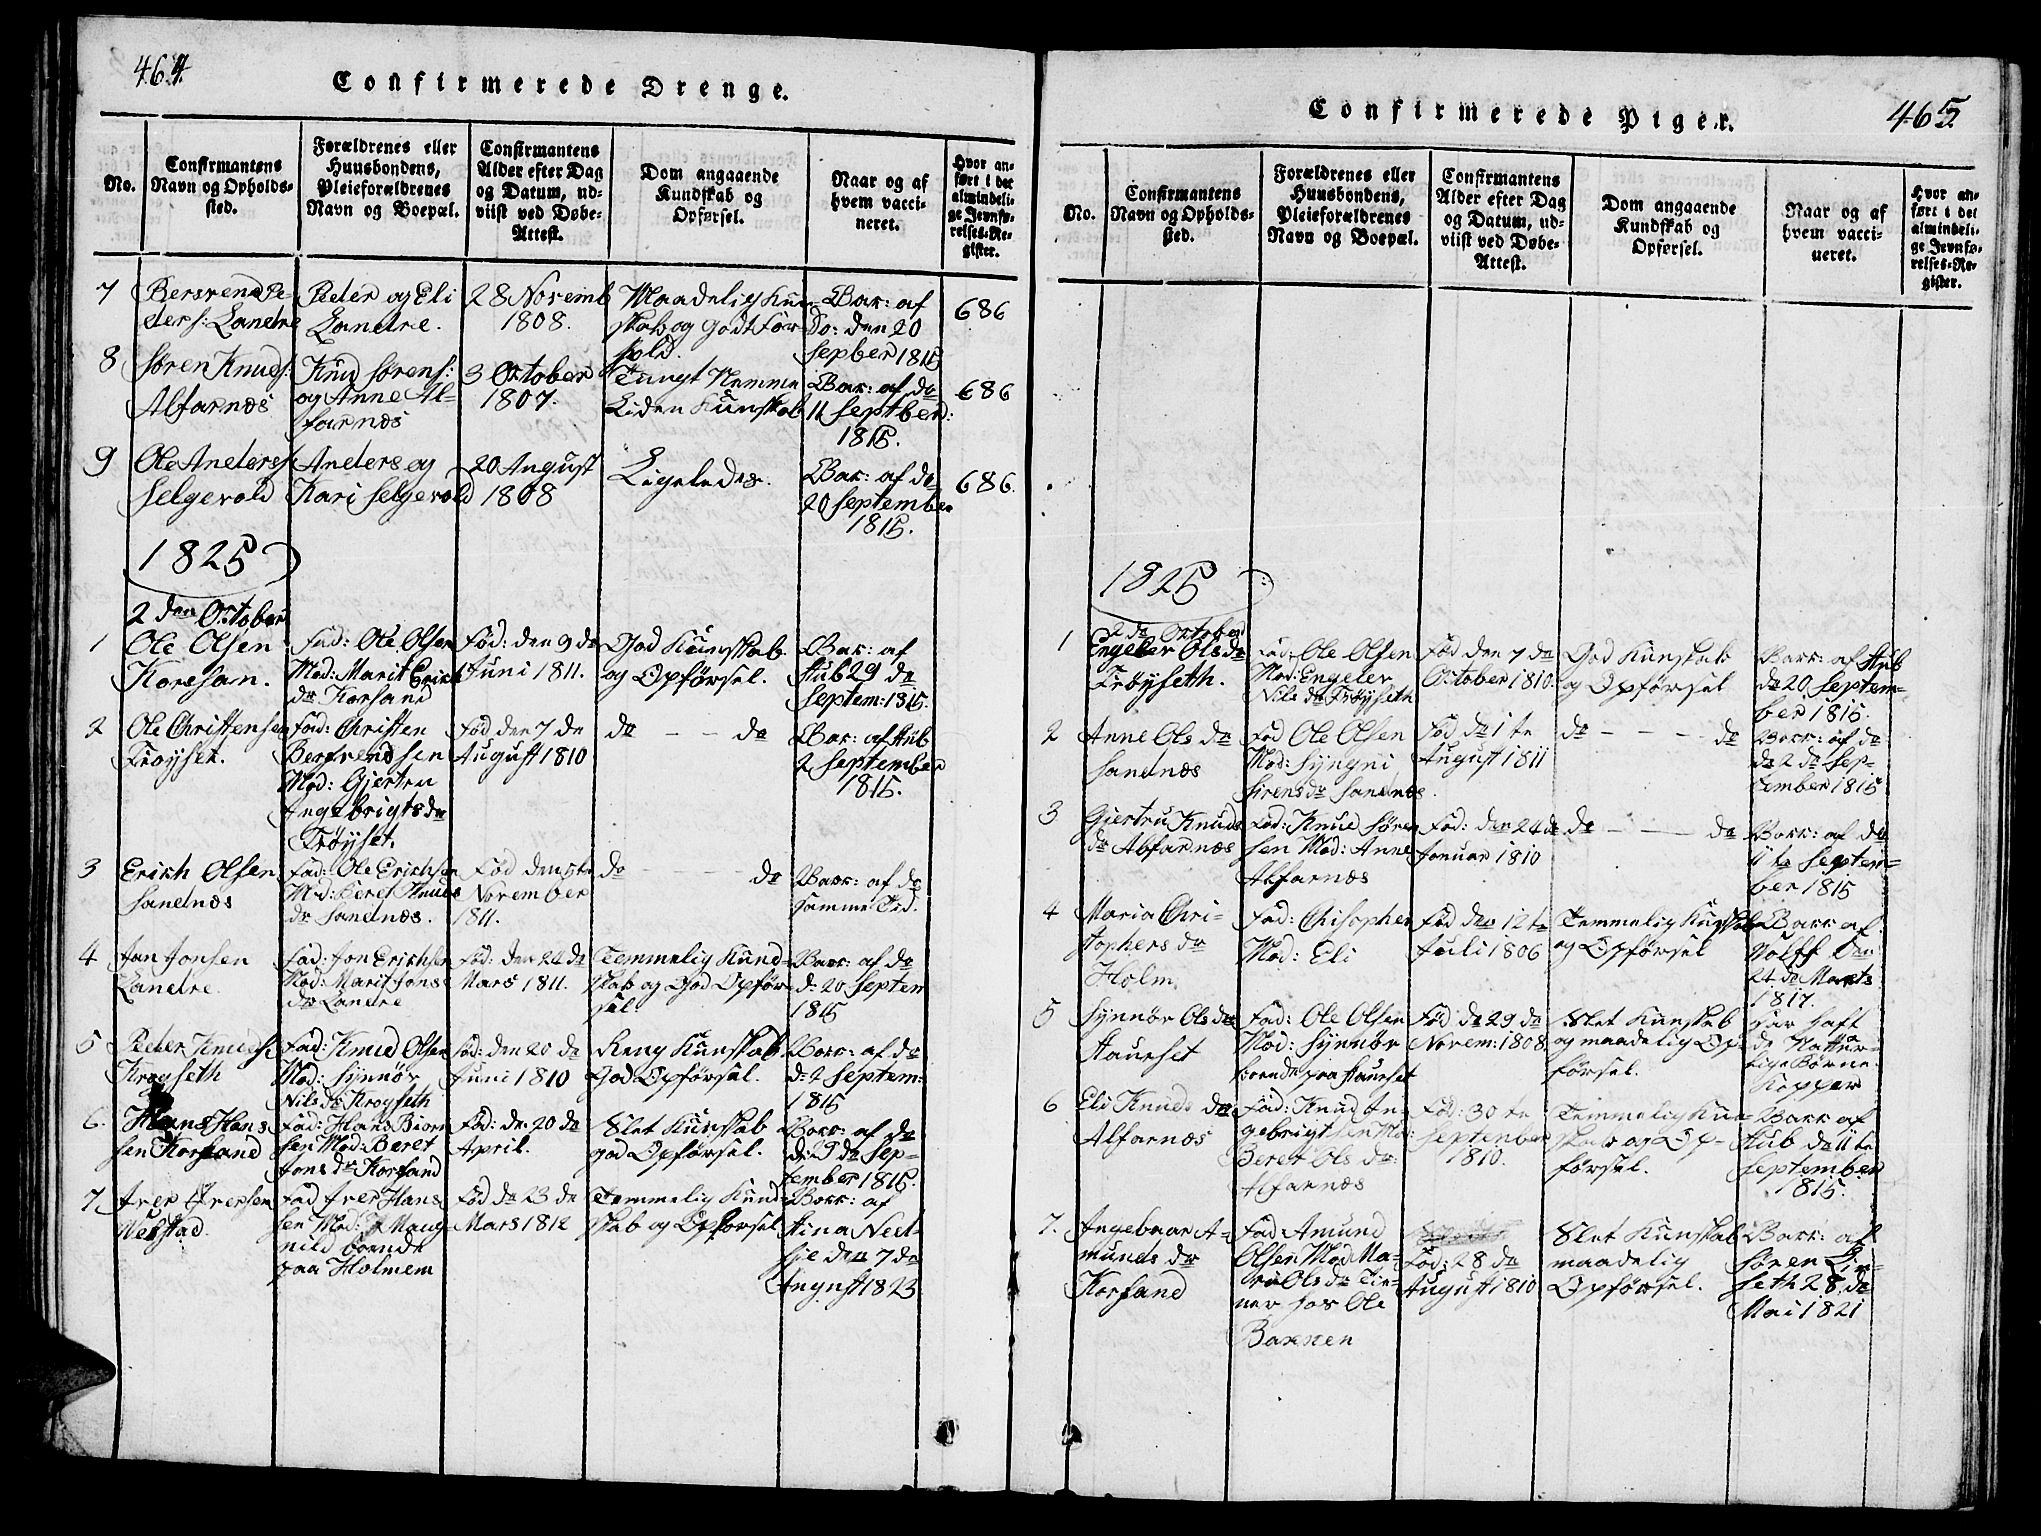 464.
Confirmerede Drenge.
No.
Confirmantens
Navn og Opholds-
sted.
Forældrenes eller
Huusbondens,
Pleieforældrenes
Navn og Boepæl.
Confirmantens
Alder efter Dag
og Datum, ud-
viist ved Døbe-
Attest.
Dom angaaende
Kundskab og
Opførsel.
Naar og af
hvem vacci-
neret.
Hvor an-
ført i det
almindeli-
ge Jevnfø-
relses-Re-
gister.
7
Bersvend Pe-
ders: Landre
Peder og Eli
Landre.
28 Novemb
1808.
Maadelig Kun-
skab og godt For-
hold.
Vac: af
Do: den 20
Sepber 1815
686
8
Søren Knuds:
Alfarnæs
Knud Sørens:
og Anne Al-
farnæs
3 October
1807.
Tungt Nemme
Liden Kunskab
Vac: af do
11 Septber:
1815.
686
9
Ole Anders:
Selgevold
Anders og
Kari Selgevold
20 August
1808
Ligeledes.
Vac: af do
20 September
1815.
686.
1825
2den October
1
Ole Olsen
Korsan.
Fad: Ole Olsen
Mod: Marit Erichs
dr Korsand
Fød: den 9 de
Juni 1811.
God Kunskab
og Opførsel.
Vac: af
Hub 29 de
Septem: 1815.
2
Ole Christensen
Frøyset.
Fad: Christen
Bersvendsen
Mod: Gjertru
Ingebrigts dr
Frøyset.
Fød den 7 de
August 1810
do - - do
Vac: af Hub
2 September
1815.
3
Erich Olsen
Sandnæs
Fad: Ole Erichsen
Mod: Beret Knuds
dr Sandnæs.
Fød den 5te
November
1811.
do - - do
Vacc: af do
samme Tid.
4
Jon Jonsen
Landre
Fad: Jon Erichsen
Mod: Marit Jons
dr Landre
Fød: den 22 de
Mars 1811.
Temmelig Kund-
skab og God Opfør-
sel.
Vacc: af do
d: 20 Septem
1815
5
Peder Knuds:
Frøyseth
Fad: Knud Olsen
Mod: Synnør
Nils dr Frøyseth
Fød: den 20 de
Juni 1810
Ring Kunskab
God Opførsel.
Vacc: af do
d: 2 Septem:
1815
6.
Hans Hans
sen Korsand
Fad: Hans Biørn
sen Mod: Beret
Jons dr Korsand
Fød: den 20 de
April.
Slet Kunskab
god Opførsel.
Vacc: af do
d: 29 de Sep-
tember 1815.
7.
Iver Iversen
Nesstad.
Fad Iver Hans
sen Mod: Maug
nild boende
paa Holmem
Fød den 23 de
Mars 1812
Temmelig Kund-
skab og Opførsel
Vacc: af
Stina Nest-
sie den 7 de
August 1823
465
Confirmerede Piger.
No.
Confirmantens
Navn og Opholds-
sted.
Forældrenes eller
Huusbondens,
Pleieforældrenes
Navn og Boepæl.
Confirmantens
Alder efter Dag
og Datum, ud-
viist ved Døbe-
Attest.
Dom angaaende
Kundskab og
Opførsel.
Naar og af
hvem vacci-
neret.
Hvor an-
ført i det
almindeli-
ge Jevnfø-
relses-Re-
gister.
1825
2 de October
1
Engeler Ols dr
Frøyseth.
Fad: Ole Olsen
Mod: Engeler
Nils dr Frøyseth
Fød den 7 de
October 1810.
God Kunskab
og Opførsel
Vacc: af Hub
de 20 Septem-
ber 1815.
2
Anne Ols dr
Sandnæs
Fad Ole Olsen
Mod: Syngni
Sirens dr Sandnæs.
Fød de 1 te
August 1811
do - - - do
Vacc: af do
de 2 de Sep-
tember 1815
3
Gjertru Knuds
dr Alfarnæs
Fad: Knud Søren
sen Mod: Anne
Alfarnæs
Fød: den 24 de
Januar 1810
do - - do
Vacc: af do
11 te Septem-
ber 1815
4
Maria Chri-
stophers dr
Holm
Fad: Chisopher
Mod: Eli
Fød den 12 te
Juli 1806
Temmelig Kunskab
og Opførsel
Vacc af.
Wolff den
24 de Marts
1817.
5
Synnør Ols dr
Haurset
Fad: Ole Olsen
Mod: Synnør
boende paa Haurset
Fød de 29 de
Novem: 1808
Slet Kunskab
og maadelig Op-
førsel.
Har haft
de Nattur-
lige Børne
Kopper
6
Eli Knuds dr
Alfarnæs
Fad: Knud In-
gebrigtsen Mo:
Beret Ols dr:
Alfarnæs
Fød: 30 te
September
1810.
Temmelig Kun-
skab og Op-
førsel.
Vacc af
Hub de 11 te
September
1815.
7.
Ingebaar A-
munds dr
Korsand
Fad Amund
Olsen Mod Ma-
ri Ols dr Tie-
ner hos Ole
Bakken
Fød: 28 de
August 1810
Slet Kunskab
maadelig
Opførsel.
Vacc: af
Søren Lin-
seth 28 de
Mai 1821